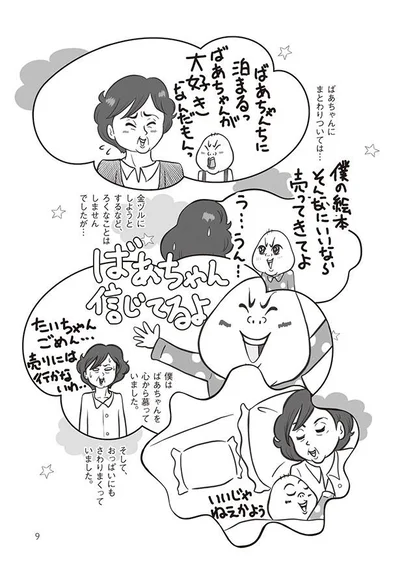 ばあちゃんに
まとわりついては…
ばあちゃんちに
泊まるっ
ばあちゃんが
大好き
なんだもんっ
僕の絵本
そんなにいいなら
売ってきてよ
う…うん…
金ヅルに
しようと
するなど、
ろくなことは
しません
でしたが…
ばあちゃん
信じてるよ
たいちゃん
ごめん…
売りには
行かな
いわ…
僕は
ばあちゃんを
心から慕って
いました。
そして、
おっぱいにも
さわりまくって
いました。
いいじゃ
ねえかよう
9